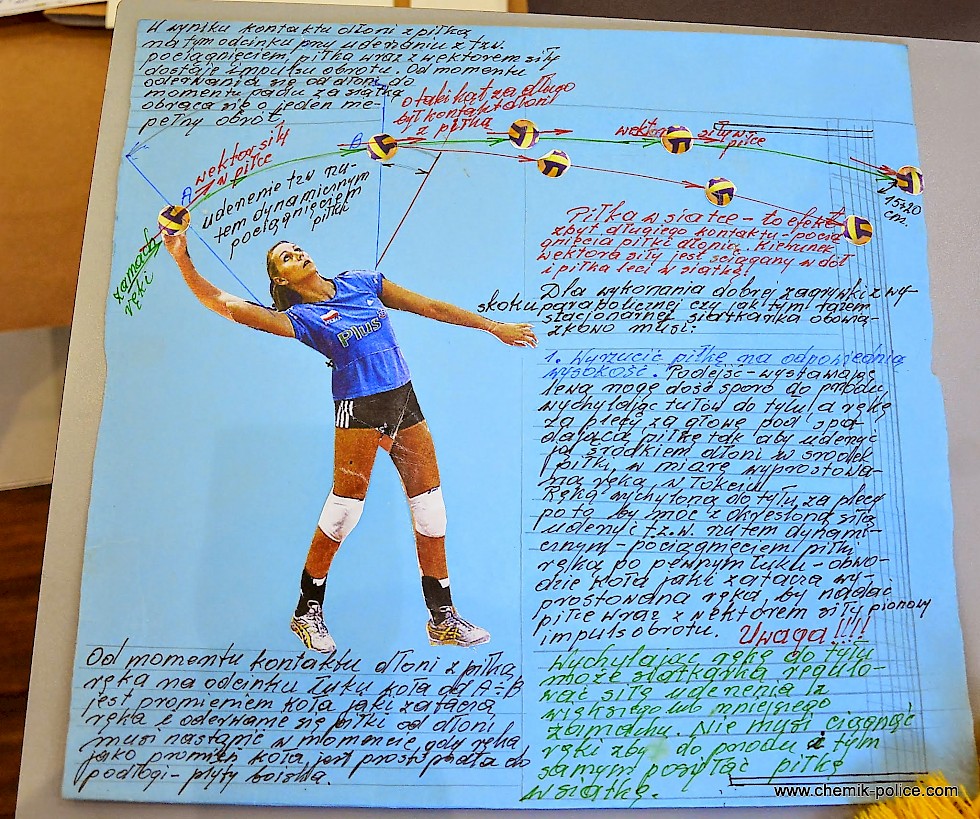 W wyniku kontaktu dłoni z piłką
na tym odcinku przy uderzaniu z tzw.
pociągnięciem, piłka wraz z wektorem siły
dostaje impulsu obrotu. Od momentu
oderwania się od dłoni do
momentu padu za siatką
obraca się o jeden nie-
pełny obrót
o taki kąt za długo
był kontakt dłoni
z piłką
wektor siły
w piłce
A
B
wektor siły w
piłce
uderzenie tzw ru-
tem dynamicznym
pociągnięciem
piłki
zamach
ręki
15÷20
cm.
Piłka w siatce - to efekt
zbyt długiego kontaktu - pocią
gnięcia piłki dłonią. Kierunek
wektora siły jest ściągany w dół
i piłka leci w siatkę!
Dla wykonania dobrej zagrywki z wy-
skoku parabolicznej czy lekkim
stacjonarnej siatkarka obowią-
zkowo musi:
Plus
1. Wyrzucić piłkę na odpowiednią
wysokość. Podejść - wystawiając
lewą nogę dość sporo do przodu,
wychylając tułów do tyłu, a rękę
za plecy za głowę pod spa-
dającą piłkę tak aby uderzyć
ją środkiem dłoni w środek
piłki, w miarę wyprostowa-
ną ręką w łokciu.
Ręka wychylona do tyłu za plecy
po to by móc z określoną siłą
uderzyć tzw. rutem dynami-
cznym - pociągnięciem piłki
ręką po pewnym łuku - obwo-
dzie koła jaki zatacza wy-
prostowana ręka, by nadać
piłce wraz z wektorem siły pionowy
impuls obrotu. Uwaga!!!!
Wychylając rękę do tyłu
może siatkarka regulo-
wać siłę uderzenia z
większego lub mniejszego
zamachu. Nie musi ciągnąć
ręki zbyt do przodu i tym
samym posyłać piłkę
w siatkę.
Od momentu kontaktu dłoni z piłką
ręka na odcinku łuku koła od A÷B
jest promieniem koła jaki zatacza
ręka i oderwanie się piłki od dłoni
musi nastąpić w momencie gdy ręka
jako promień koła jest prostopadła do
podłogi - płyty boiska.
www.chemik-police.com